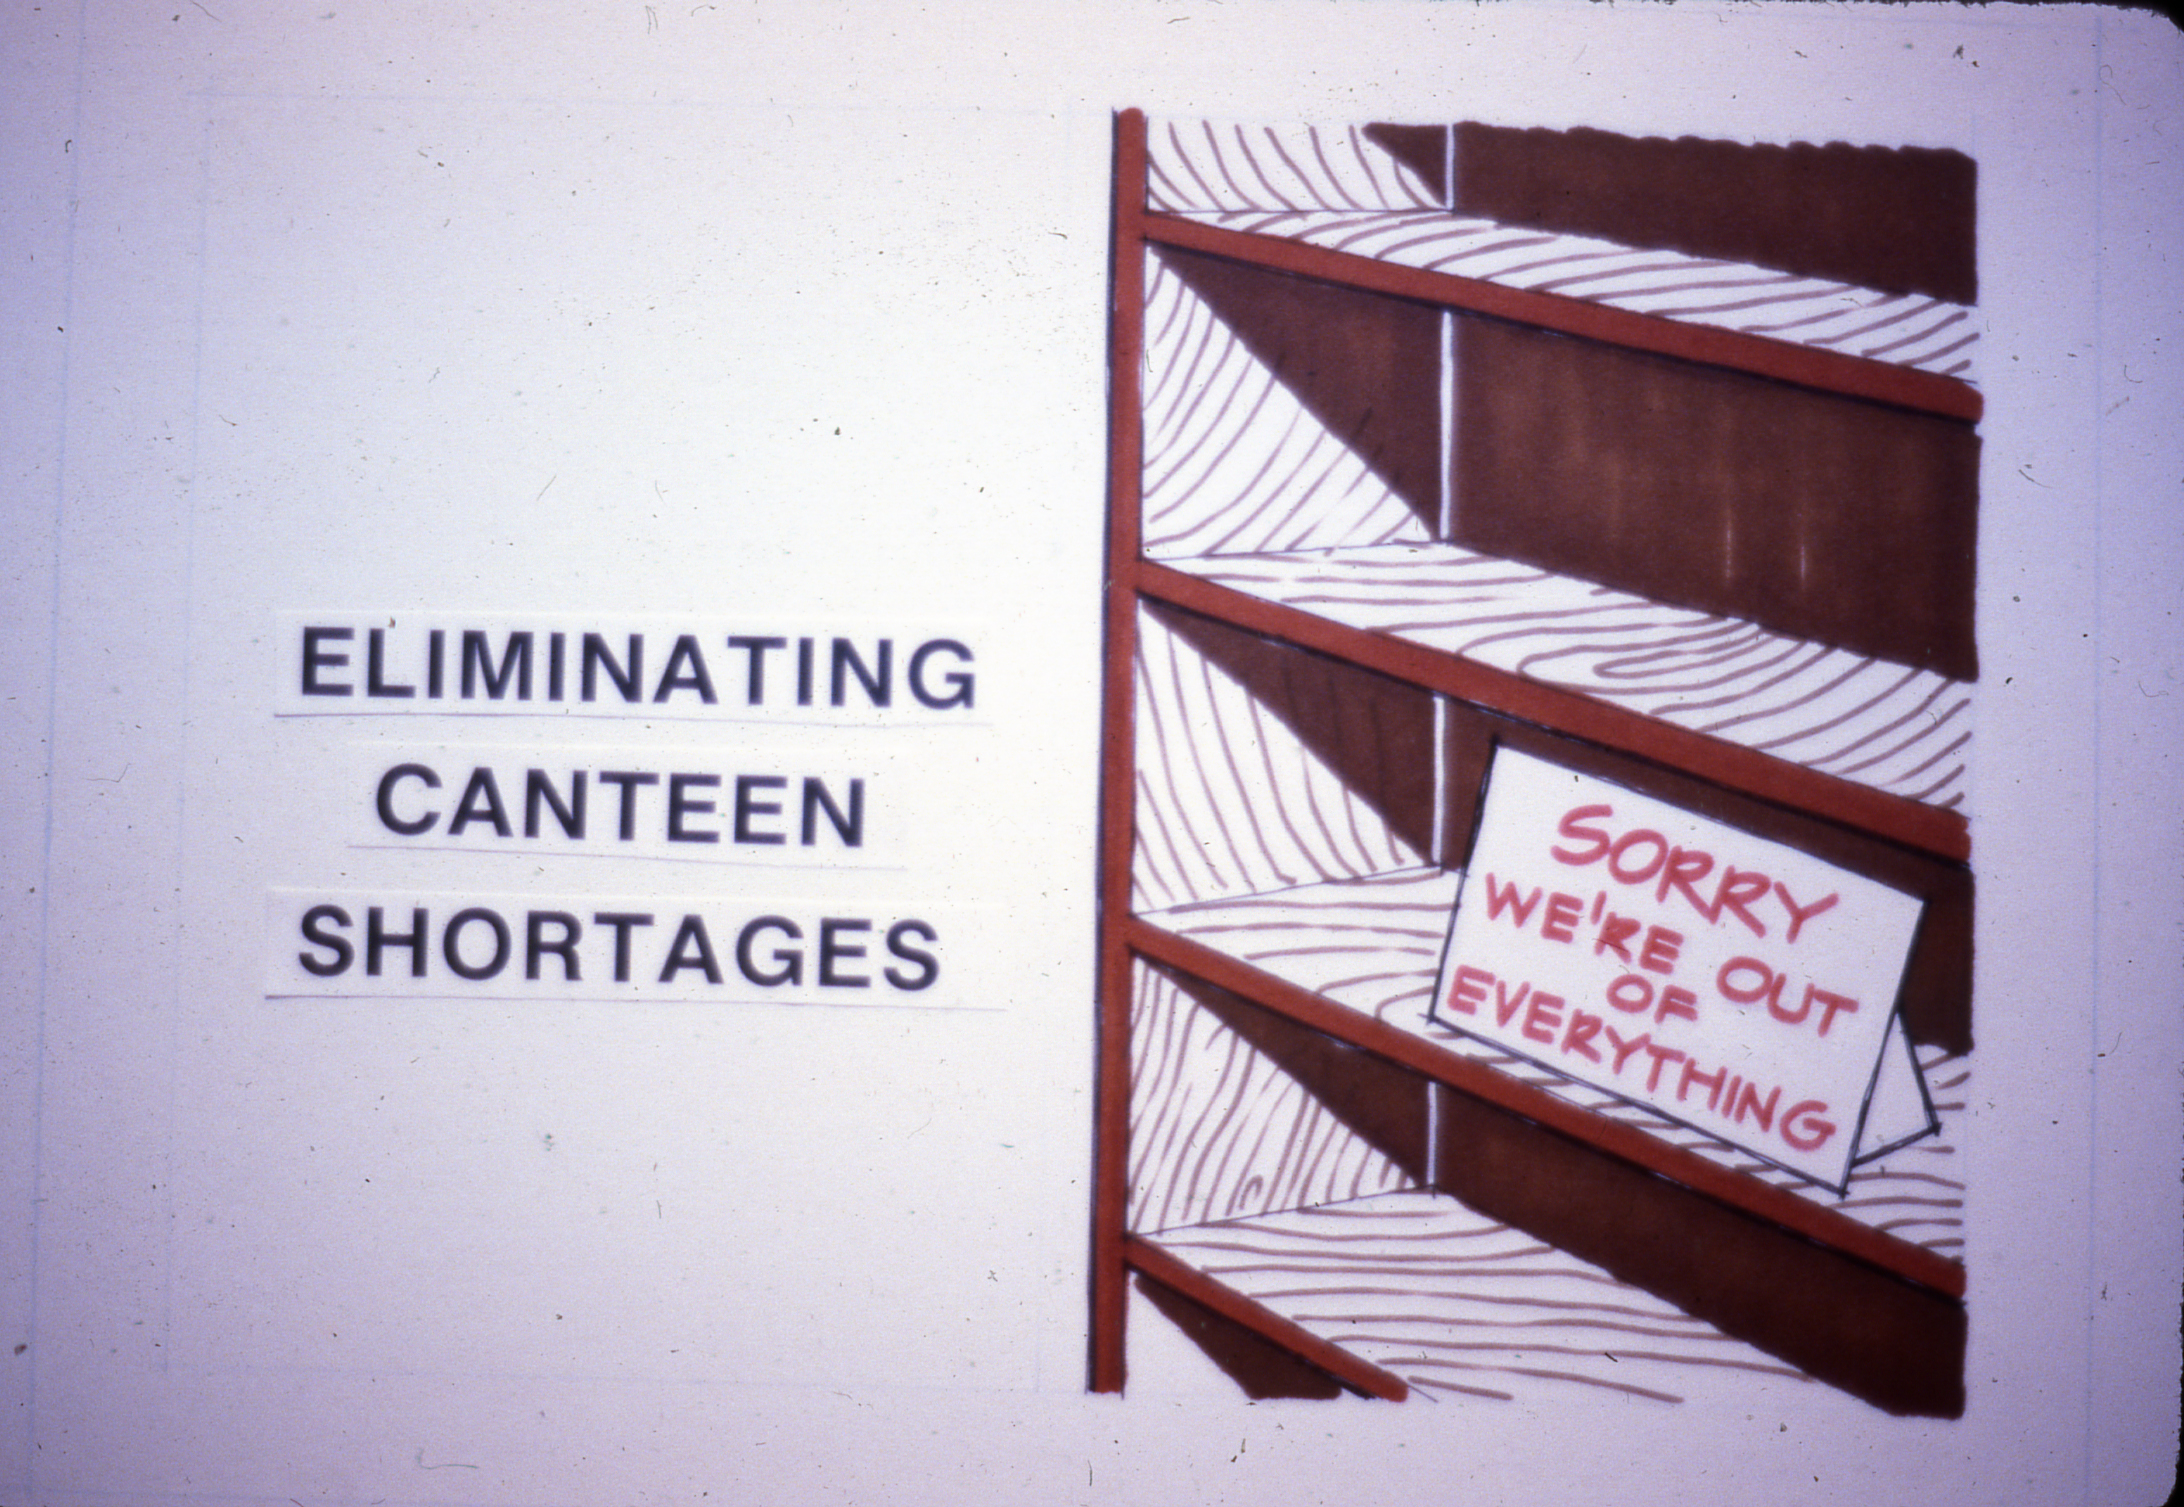 ELIMINATING
CANTEEN
SHORTAGES
SORRY
WE'RE OUT
OF
EVERYTHING